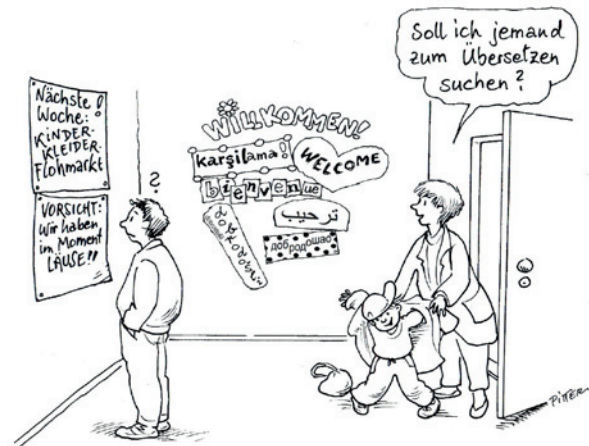 Nächste
Woche:
KiNDER-
KLEiDER-
Flohmarkt
VORSICHT:
Wir haben
im Moment
LÄUSE!!
?
WiLLKOMMEN!
karşilama!
WELCOME
bienvenue
ترحيب
добродошао
Soll ich jemand
zum Übersetzen
suchen?
PiTTER